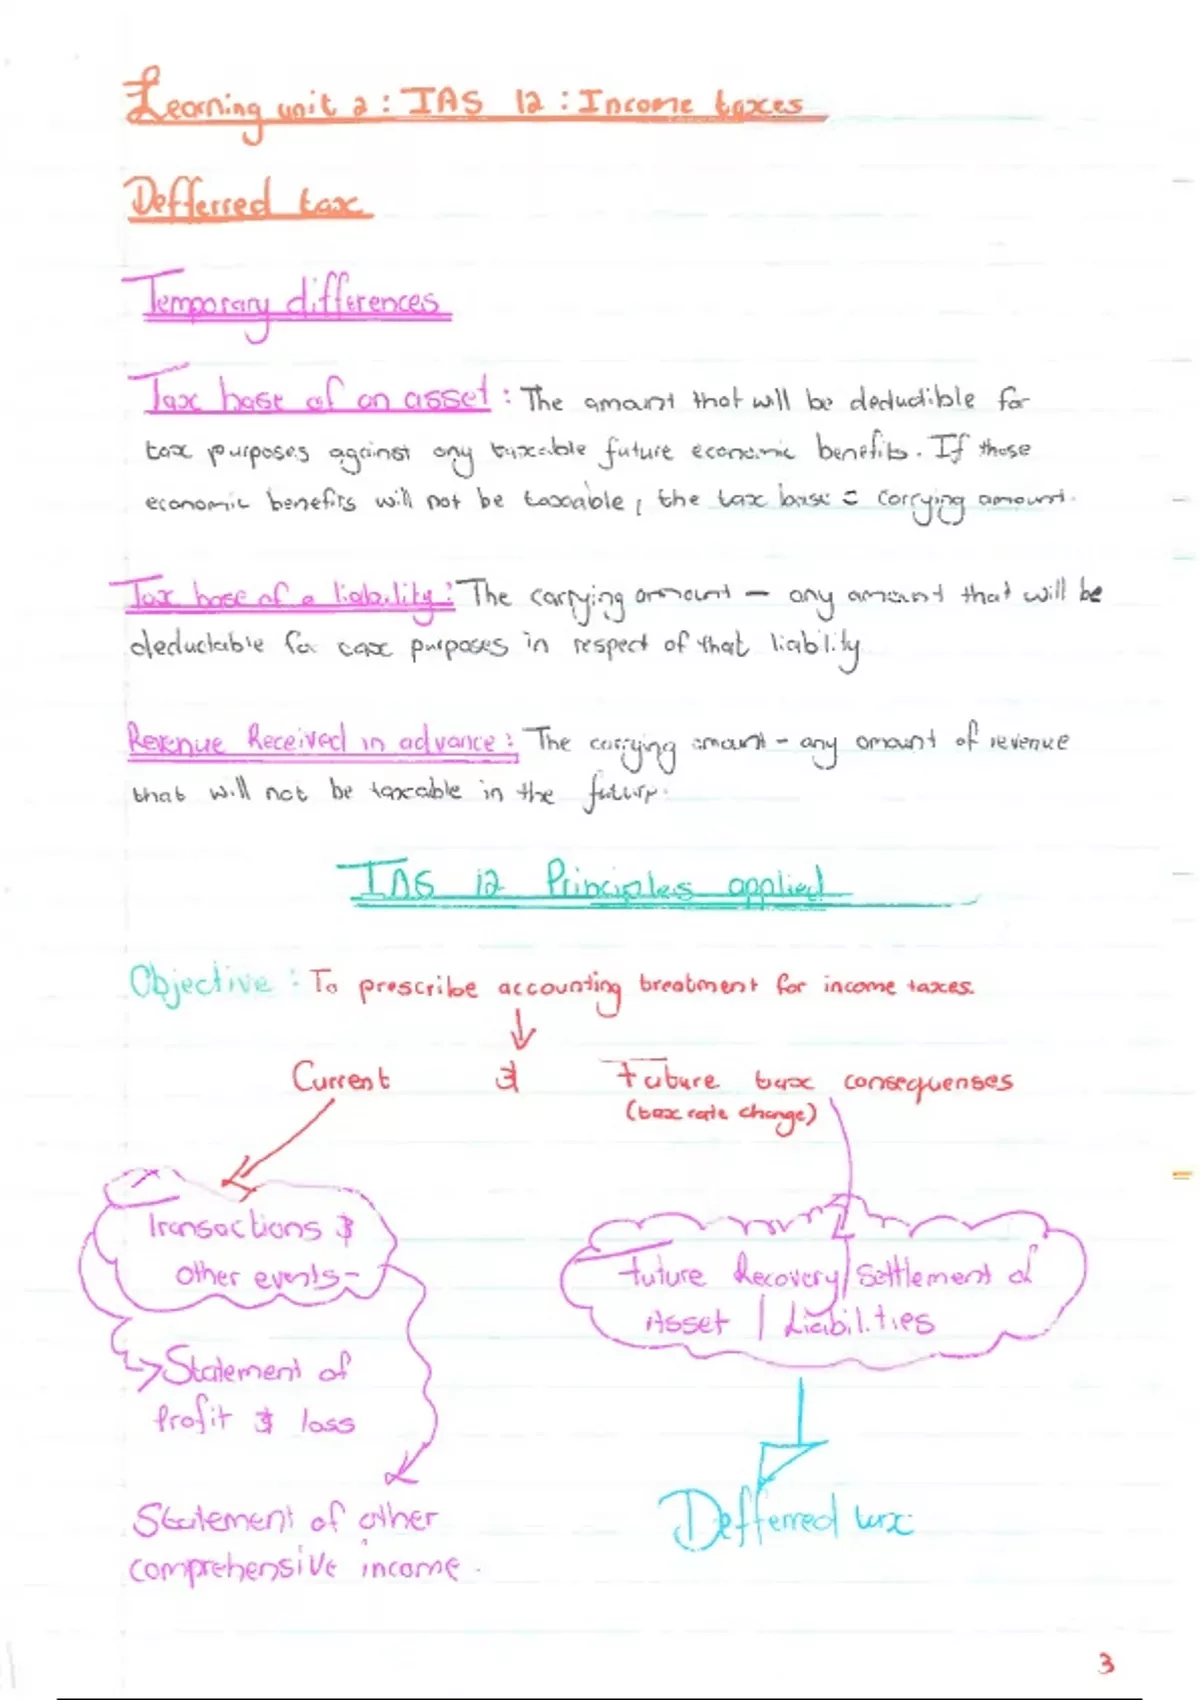 Learning unit 2 : IAS 12 : Income taxes
Defferred tax
Temporary differences
Tax base of an asset : The amount that will be deductible for
tax purposes against any taxable future economic benefits. If those
economic benefits will not be taxable, the tax base = carrying amount.
Tax base of a liability : The carrying amount - any amount that will be
deductable for tax purposes in respect of that liability
Revenue Received in advance : The carrying amount - any amount of revenue
that will not be taxable in the future.
IAS 12 Principles applied
Objective : To prescribe accounting treatment for income taxes.
Current & Future tax consequenses
(tax rate change)
Transactions &
other events-
Future Recovery/Settlement of
Asset / Liabilities
Statement of
Profit & loss
Statement of other
comprehensive income.
Defferred tax
3